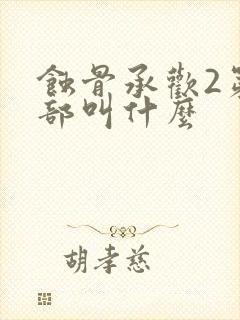 蝕骨承歡2第
部叫什麼
胡孝慈